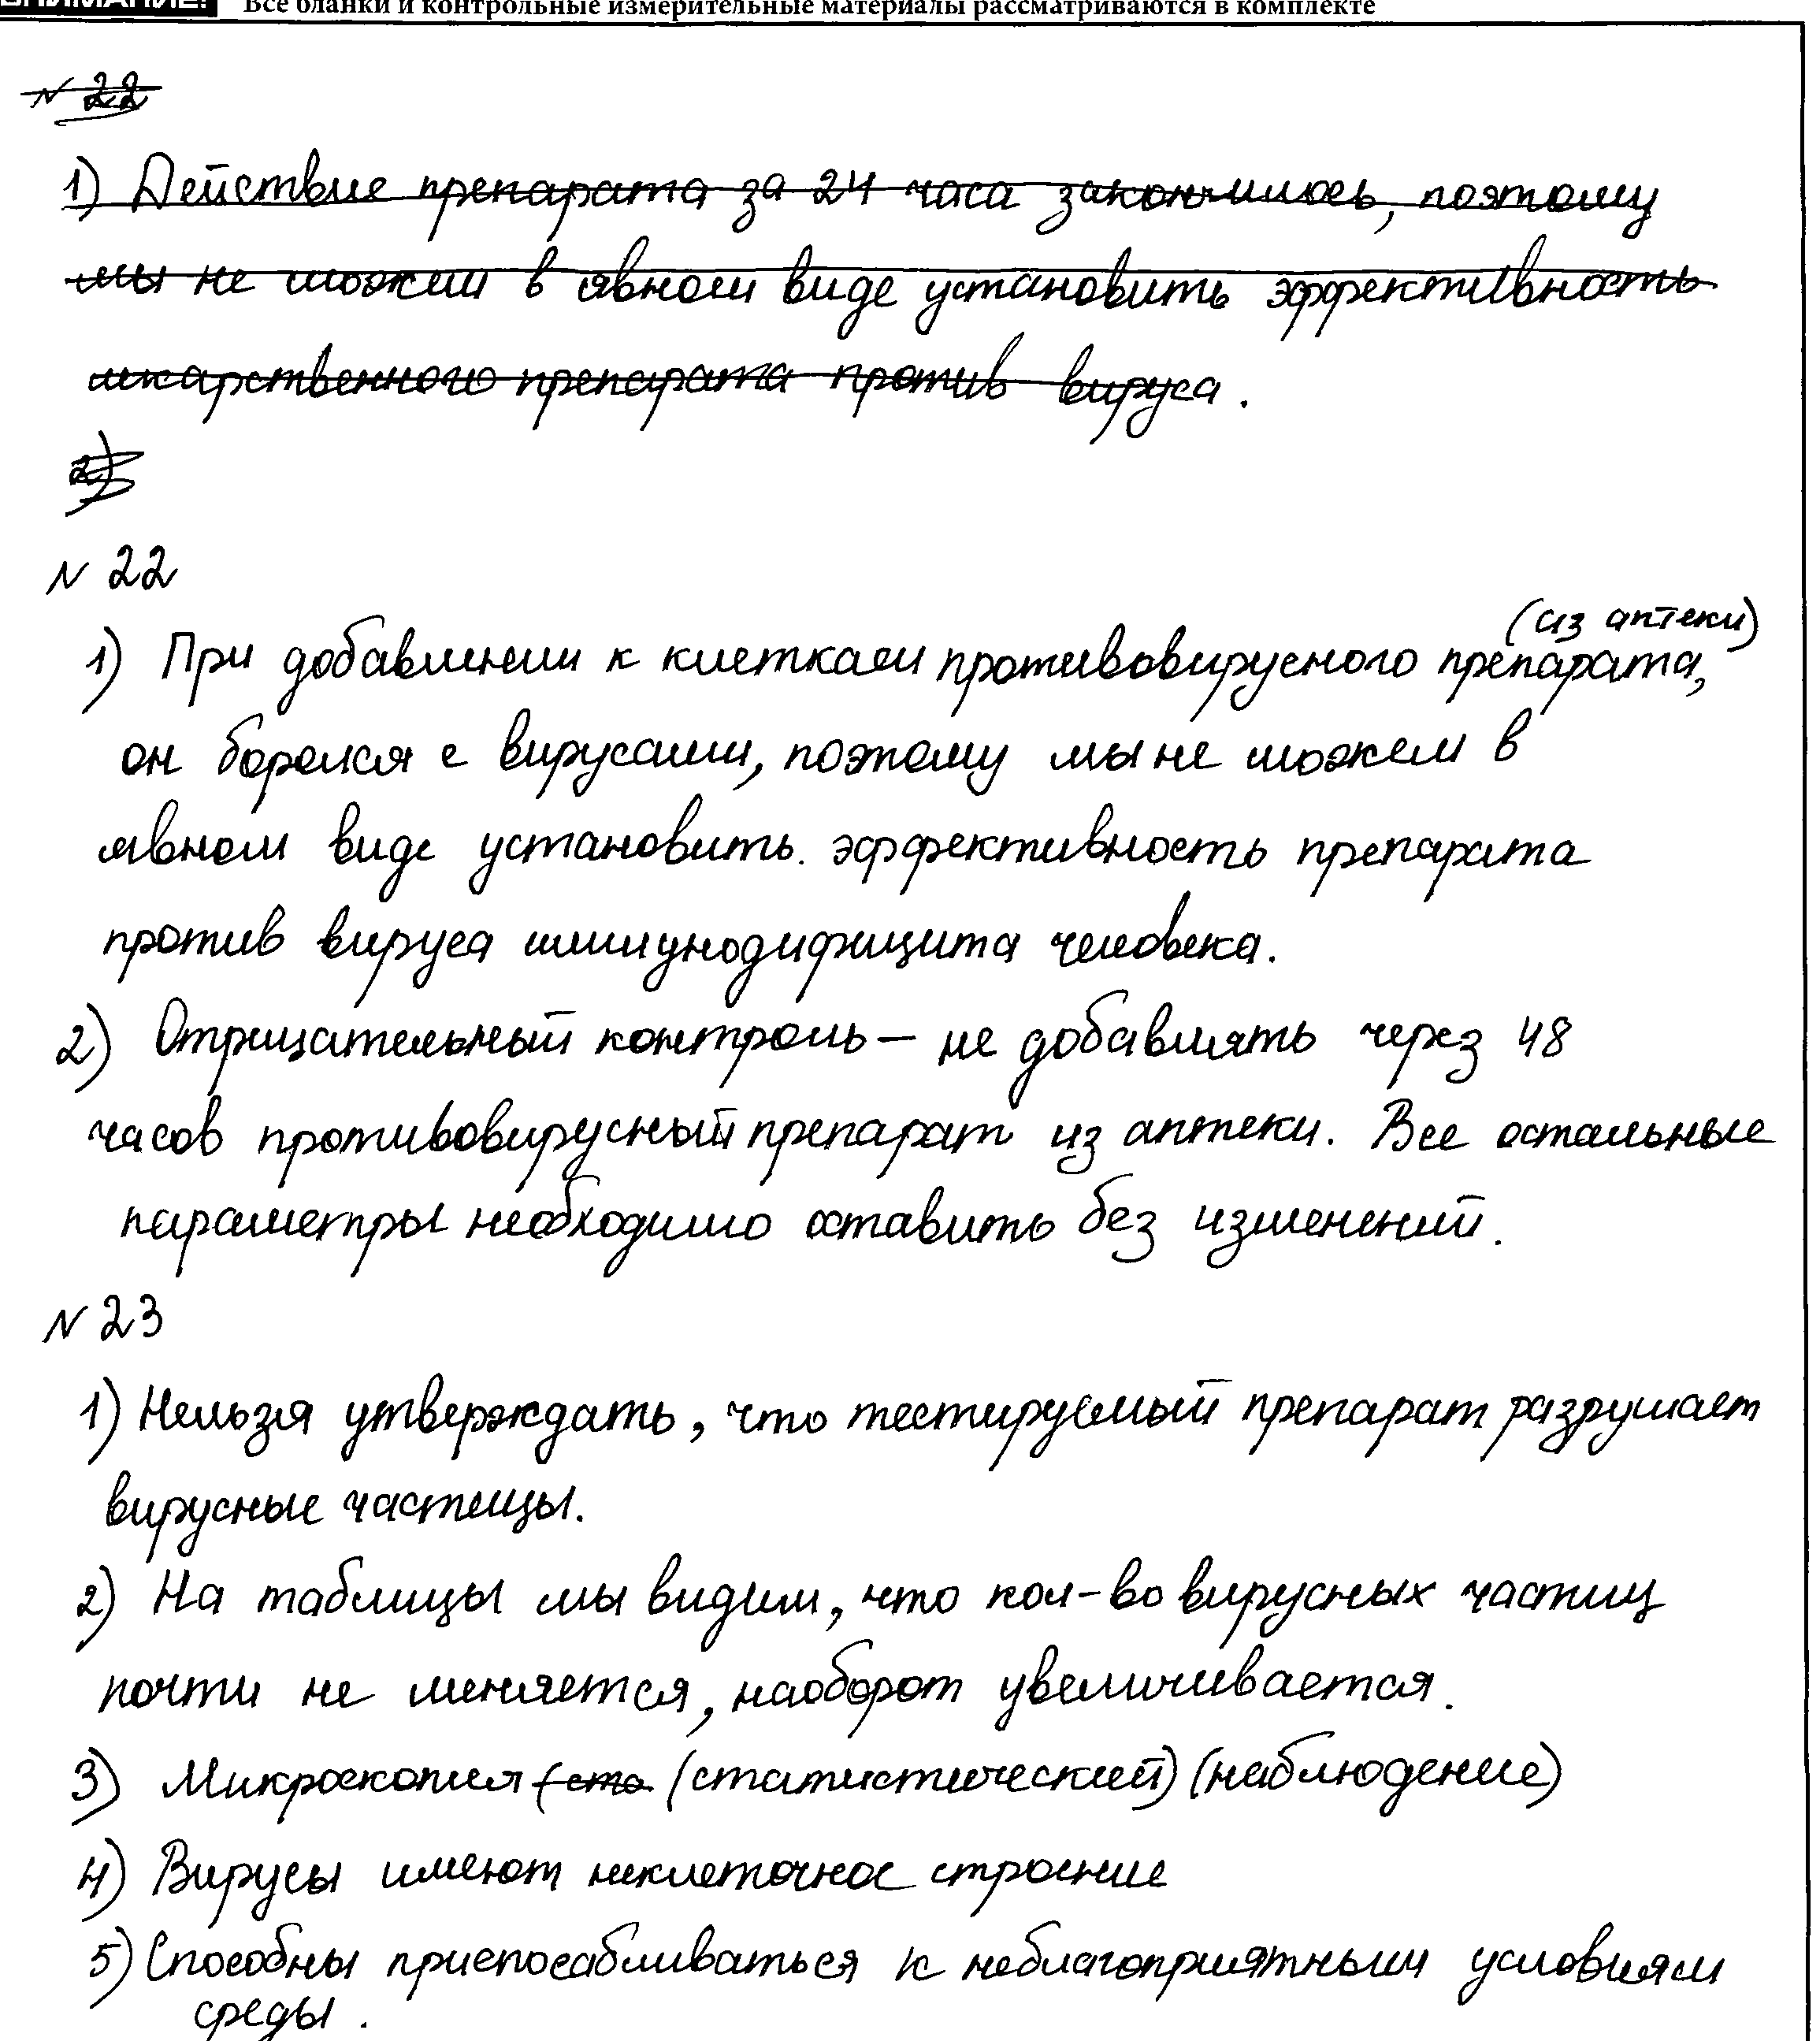 ВНИМАНИЕ! Все бланки и контрольные измерительные материалы рассматриваются в комплекте
N 22
1) Действие препарата за 24 часа закончилось, поэтому
мы не можем в явном виде установить эффективность
лекарственного препарата против вируса.
2)
N 22
(из аптеки)
1) При добавлении к клеткам противовирусного препарата,
он боролся с вирусами, поэтому мы не можем в
явном виде установить. эффективность препарата
против вируса иммунодифицита человека.
2) Отрицательный контроль – не добавлять через 48
часов противовирусный препарат из аптеки. Все остальные
параметры необходимо оставить без изменений.
N 23
1) Нельзя утверждать, что тестируемый препарат разрушает
вирусные частицы.
2) На таблицы мы видим, что кол-во вирусных частиц
почти не меняется, наоборот увеличивается.
3) Микроскопия (ста (статистический) (наблюдение)
4) Вирусы имеют неклеточное строение
5) Способны приспосабливаться к неблагоприятным условиям
среды.